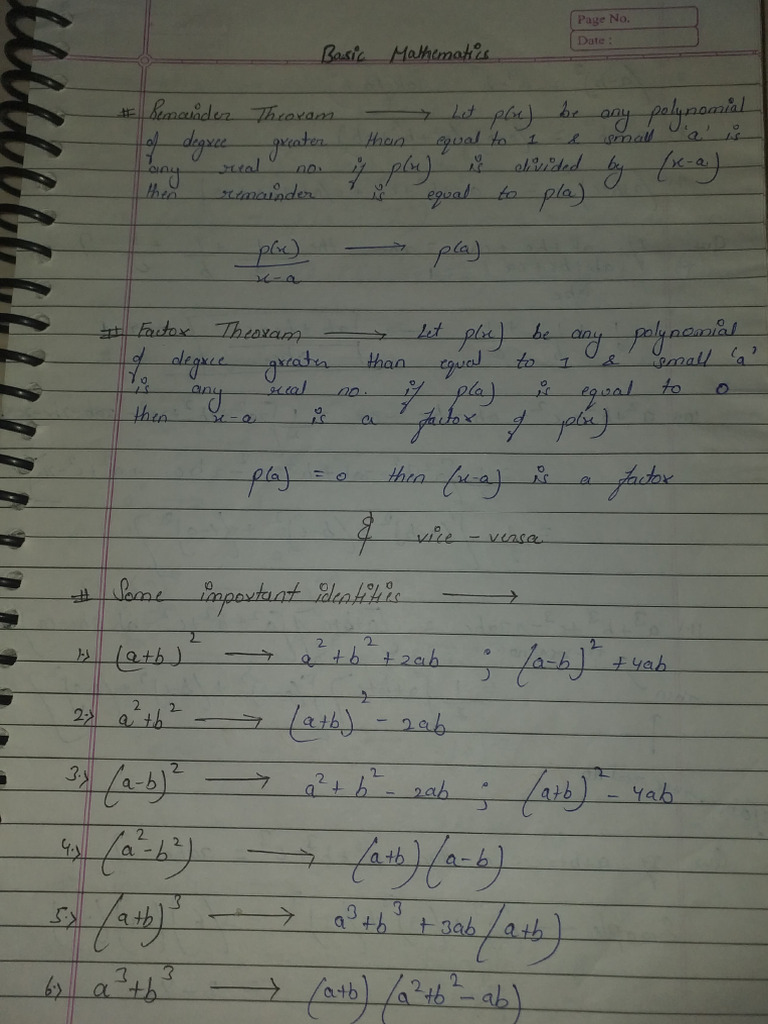 Page No.
Date :
Basic Mathematics
# Remainder Theoram ⟶ Let p(x) be any polynomial
of degree greater than equal to 1 & small 'a' is
any real no. if p(x) is divided by (x-a)
then remainder is equal to p(a)
p(x)/x-a ⟶ p(a)
# Factor Theoram ⟶ Let p(x) be any polynomial
of degree greater than equal to 1 & small 'a'
is any real no. if p(a) is equal to 0
then x-a is a factor of p(x)
p(a) = 0 then (x-a) is a factor
& vice - versa
# Some important identitis ⟶
1.) (a+b)² ⟶ a²+b²+2ab ; (a-b)²+4ab
2.) a²+b² ⟶ (a+b)² - 2ab
3.) (a-b)² ⟶ a²+b²-2ab ; (a+b)²-4ab
4.) (a²-b²) ⟶ (a+b)(a-b)
5.) (a+b)³ ⟶ a³+b³+3ab(a+b)
6.) a³+b³ ⟶ (a+b)(a²+b²-ab)